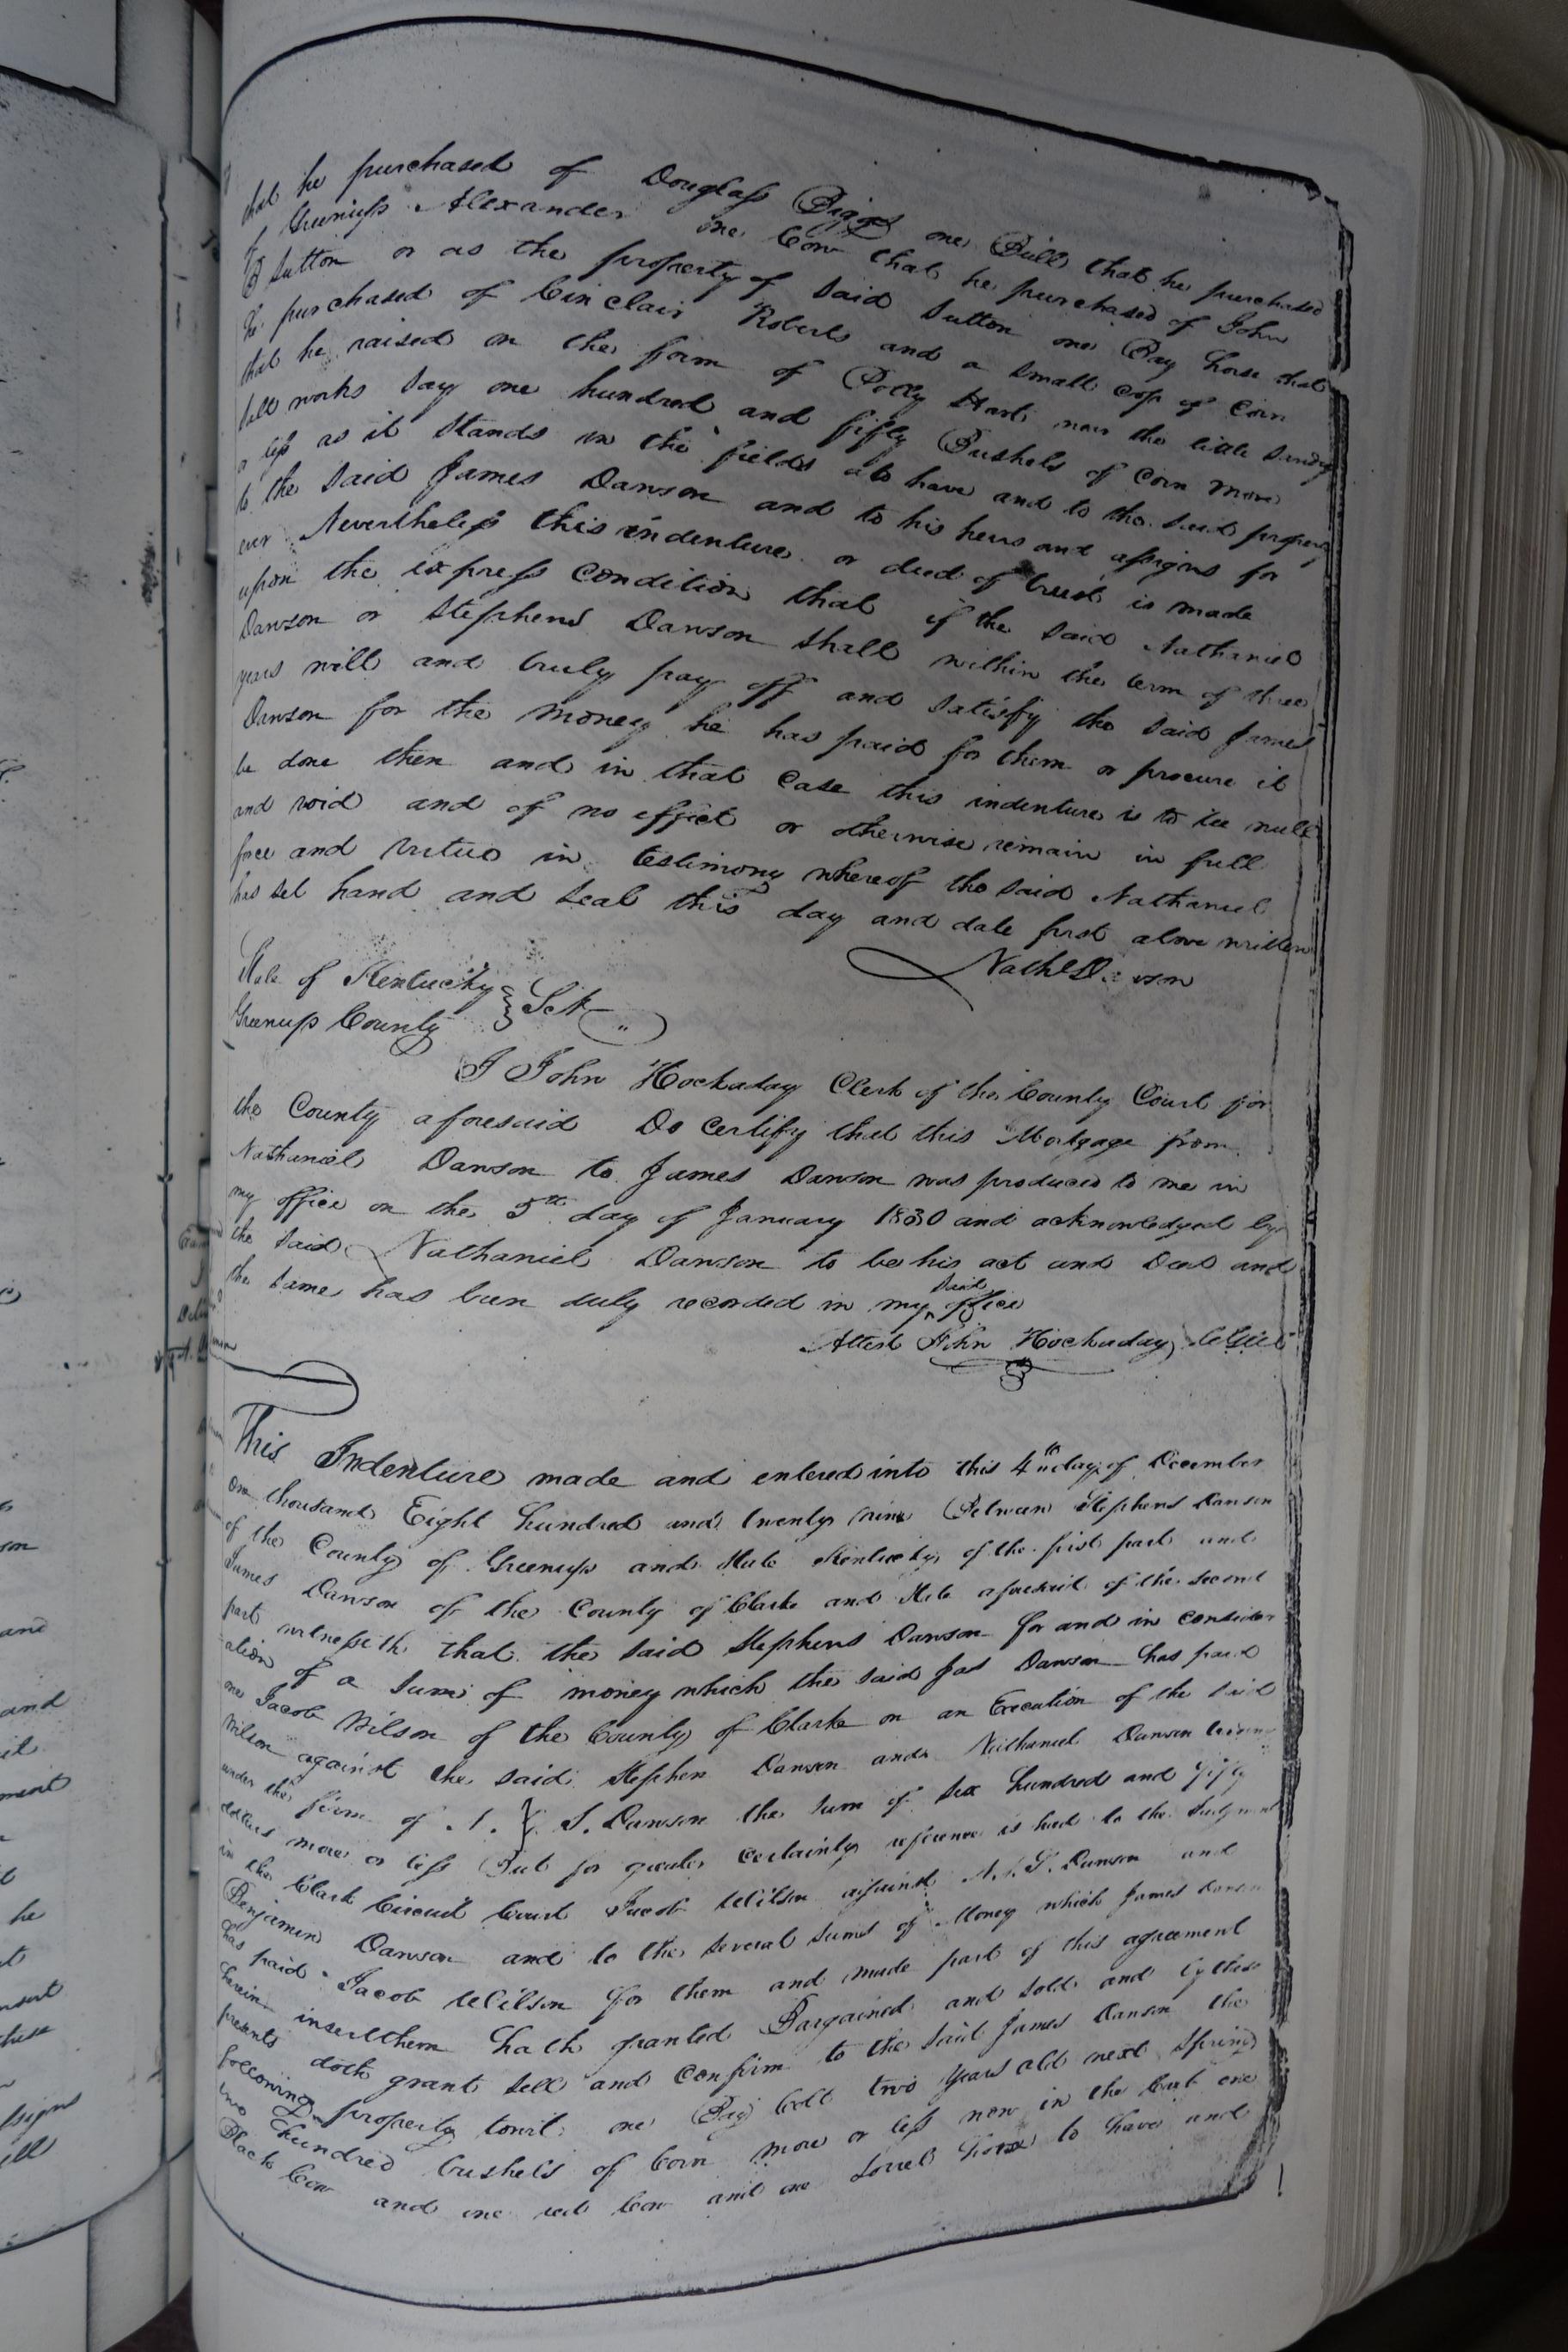 that he purchased of Douglass Biggs one Bull that he purchased
of Greenup Alexander one Cow that he purchased of John
Sutton or as the property of said Sutton one Bay horse that
he purchased of Cinclair Roberts and a small cop of Corn
that he raised on the farm of Polly Hart near the little Sandy
Salt works say one hundred and fifty Bushels of Corn more
or less as it Stands in the fields to have and to the said property
to the said James Dawson and to his heirs and assigns for
ever Nevertheless this indenture or deed of trust is made
upon the express condition that if the said Nathaniel
Dawson or Stephens Dawson shall within the term of three
years will and truly pay off and satisfy the said James
Dawson for the money he has paid for them or procure it
be done then and in that case this indenture is to be null
and void and of no effect or otherwise remain in full
force and virtue in testimony whereof the said Nathaniel
has set hand and seal this day and date first above written
Nathl Dawson
State of Kentucky } Sct
Greenup County
I John Hockaday Clerk of the County Court for
the County aforesaid Do Certify that this Mortgage from
Nathaniel Dawson to James Dawson was produced to me in
my office on the 5th day of January 1830 and acknowledged by
the said Nathaniel Dawson to be his act and Deed and
the same has been duly recorded in my said office
Attest John Hockaday
This Indenture made and entered into this 4th day of December
One thousand Eight hundred and twenty nine Between Stephens Dawson
of the County of Greenup and State Kentucky of the first part and
James Dawson of the County of Clarke and State aforesaid of the second
part witnesseth that the said Stephens Dawson for and in consider
ation of a sum of money which the said Jas Dawson has paid
one Jacob Wilson of the County of Clarke on an Execution of the said
Wilson against the said Stephen Dawson and Nathaniel Dawson
under the firm of N. & S. Dawson the sum of six hundred and fifty
dollars more or less But for greater certainty reference is had to the Judgment
in the Clark Circuit Court Jacob Wilson against N. & S. Dawson and
Benjamin Dawson and to the several sums of Money which James Dawson
has paid Jacob Wilson for them and made part of this agreement
herein insert them hath granted Bargained and sold and by these
presents doth grant sell and confirm to the said James Dawson the
following property towit one Bay Colt two years old next Spring
two hundred bushels of Corn more or less now in the Crib one
Black Cow and one red Cow and one Sorrel horse to have and